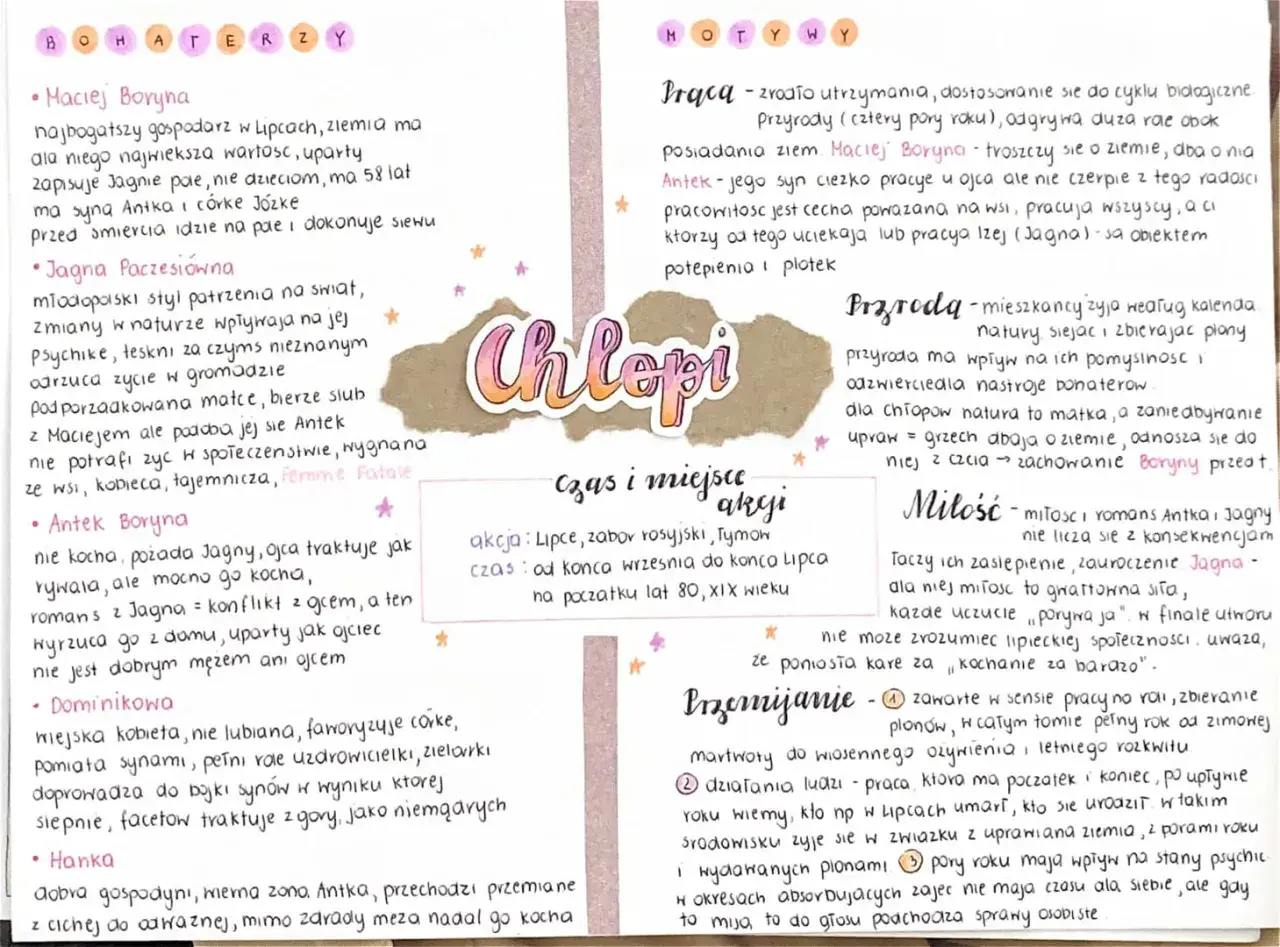 BOHATERZY
• Maciej Boryna
najbogatszy gospodarz w Lipcach, ziemia ma
dla niego największa wartosc, uparty
zapisuje Jagnie pole, nie dzieciom, ma 58 lat
ma syna Antka i córke Józke
przed smiercia idzie na pole i dokonuje siewu
• Jagna Paczesiówna
młodopolski styl patrzenia na swiat,
zmiany w naturze wpływaja na jej
psychike, teskni za czyms nieznanym
odrzuca zycie w gromadzie
podporzadkowana matce, bierze slub
z Maciejem ale podoba jej sie Antek
nie potrafi zyc w społeczenstwie, wygnana
ze wsi, kobieca, tajemnicza, Femme Fatale
• Antek Boryna
nie kocha, pożada Jagny, ojca traktuje jak
rywala, ale mocno go kocha,
romans z Jagna = konflikt z ojcem, a ten
wyrzuca go z domu, uparty jak ojciec
nie jest dobrym mężem ani ojcem
• Dominikowa
wiejska kobieta, nie lubiana, faworyzuje córke,
pomiata synami, pełni role uzdrowicielki, zielarki
doprowadza do bojki synów w wyniku ktorej
slepnie, facetow traktuje z gory, jako niemądrych
• Hanka
dobra gospodyni, wierna zona Antka, przechodzi przemiane
z cichej do odwaznej, mimo zdrady meza nadal go kocha
Chłopi
czas i miejsce
akcji
akcja: Lipce, zabor rosyjski, Tymow
czas: od konca wrzesnia do konca Lipca
na poczatku lat 80, XIX wieku
MOTYWY
Praca - zrodło utrzymania, dostosowanie sie do cyklu biologiczne
Przyrody (cztery pory roku), odgrywa duza role obok
posiadania ziem. Maciej Boryna - troszczy sie o ziemie, dba o nia
Antek - jego syn ciezko pracuje u ojca ale nie czerpie z tego radosci
pracowitosc jest cecha powazana na wsi, pracuja wszyscy, a ci
ktorzy od tego uciekaja lub pracuja lzej (Jagna) - sa obiektem
potepienia i plotek
Przyroda - mieszkancy żyja według kalenda
natury. siejac i zbierajac plony
przyroda ma wpływ na ich pomyslnosc i
odzwierciedla nastroje bohaterow.
dla chłopow natura to matka, a zaniedbywanie
upraw = grzech dbaja o ziemie, odnosza sie do
niej z czcia → zachowanie Boryny przed t.
Miłość - miłosc i romans Antka i Jagny
nie licza się z konsekwencjam
łaczy ich zaslepienie, zauroczenie Jagna -
dla niej miłosc to gwałtowna siła,
kazde uczucie „porywa ja". w finale utworu
nie moze zrozumiec lipieckiej społeczności. uwaza,
że poniosła kare za „kochanie za bardzo".
Przemijanie - ① zawarte w sensie pracy na roli, zbieranie
plonów, w całym tomie pełny rok od zimowej
martwoty do wiosennego ożywienia i letniego rozkwitu
② działania ludzi - praca, ktora ma poczatek i koniec, po upływie
roku wiemy, kto np w Lipcach umarł, kto sie urodził. w takim
środowisku zyje się w zwiazku z uprawiana ziemia, z porami roku
i wydawanych plonami. ③ pory roku maja wpływ na stany psychic
w okresach absorbujących zajec nie maja czasu dla siebie, ale gdy
to mija to do głosu podchodza sprawy osobiste.